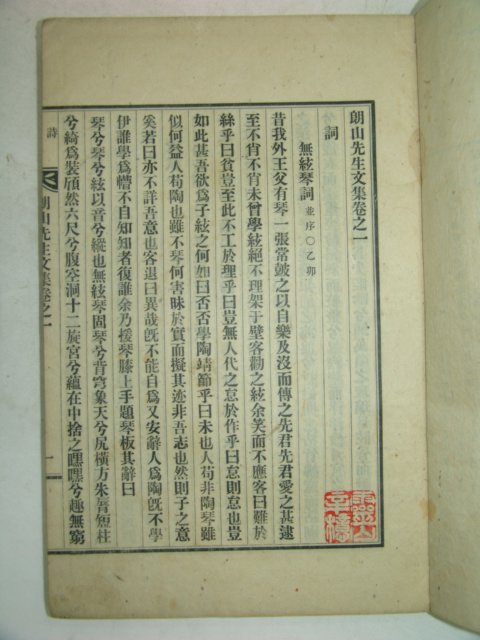 朗山先生文集卷之一
詞
無絃琴詞 並序○乙卯
昔我外王父有琴一張常鼓之以自樂及沒而傳之先君先君愛之甚逮
至不肖不肖未曾學絃絕不理架于壁客勸之絃余笑而不應客曰難於
絲乎曰貧豈至此不工於理乎曰豈無人代之怠於作乎曰怠則怠也豈
如此甚吾欲爲子絃之何如曰否否學陶靖節乎曰未也人苟非陶琴雖
似何益人苟陶也雖不琴何害昧於實而擬其迹非吾志也然則子之意
奚若曰亦不詳吾意也客退曰異哉旣不能自爲又安辭人爲陶旣不學
伊誰學爲懵不自知知者復誰余乃援琴膝上手題琴板其辭曰
琴兮琴兮絃以音兮縱也無絃琴固琴兮背穹象天兮尻橫方朱脣短柱
兮綺爲裝頎然六尺兮腹空洞十二旋宮兮蘊在中捨之嘿嘿兮趣無窮
詩
朗山先生文集卷之一
一